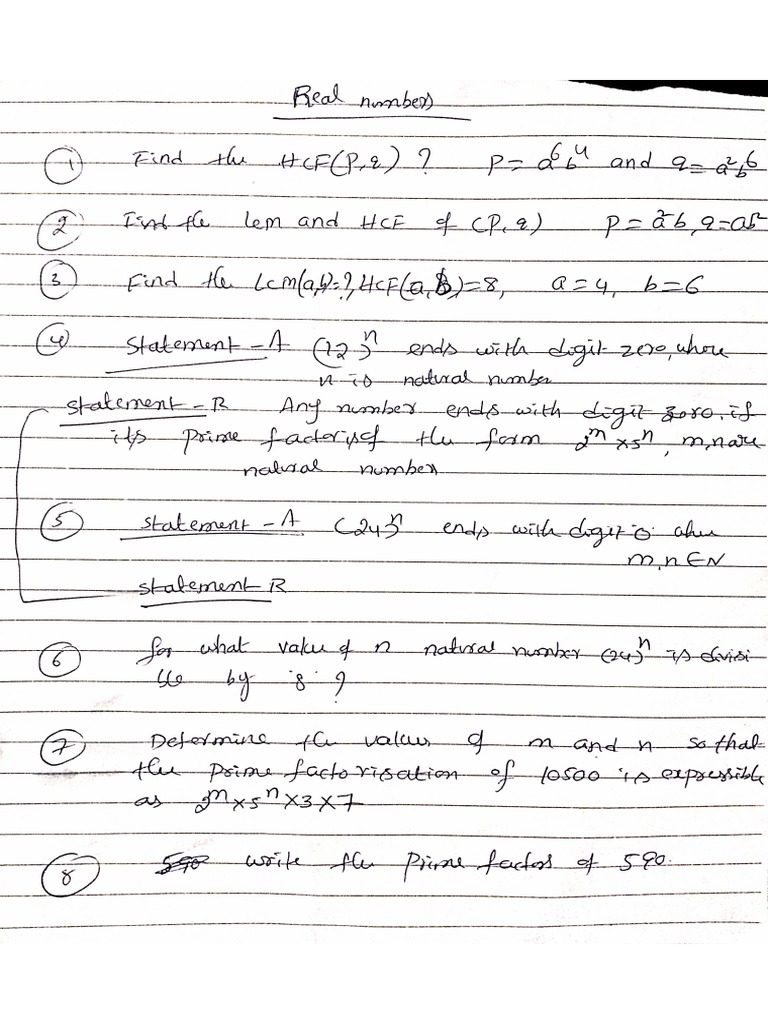 Real numbers
1 Find the HCF(P,q) ? P = a⁶b⁴ and q = a²b⁶
2 Find the lcm and HCF of (P,q) P = a²b, q = ab²
3 Find the Lcm(a,b)=?, HCF(a,b)=8, a=4, b=6
4 Statement - A (12)ⁿ ends with digit zero, where
n is natural number
Statement - R Any number ends with digit zero, if
its prime factoris of the form 2ᵐ×5ⁿ, m,n are
natural number
5 Statement - A (24)ⁿ ends with digit 0 when
m,n∈N
Statement R
6 for what value of n natural number (24)ⁿ is divisi
ble by 8 ?
7 Determine the values of m and n so that
the prime factorisation of 10500 is expressible
as 2ᵐ×5ⁿ×3×7
8 write the prime factors of 590.